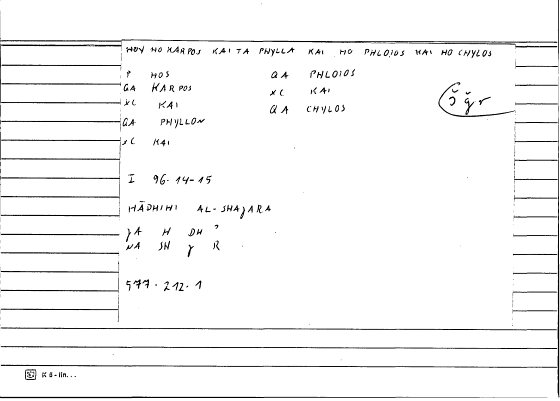 HOY HO KARPOS KAI TA PHYLLA KAI HO PHLOIOS KAI HO CHYLOS
P HOS
QA KARPOS
xC KAI
QA PHYLLON
xC KAI
QA PHLOIOS
xC KAI
QA CHYLOS
š ǧ r
I 96.14-15
HĀDHIHI AL-SHAJARA
JA H DH ?
NA SH J R
577.212.1
K 6-lin...